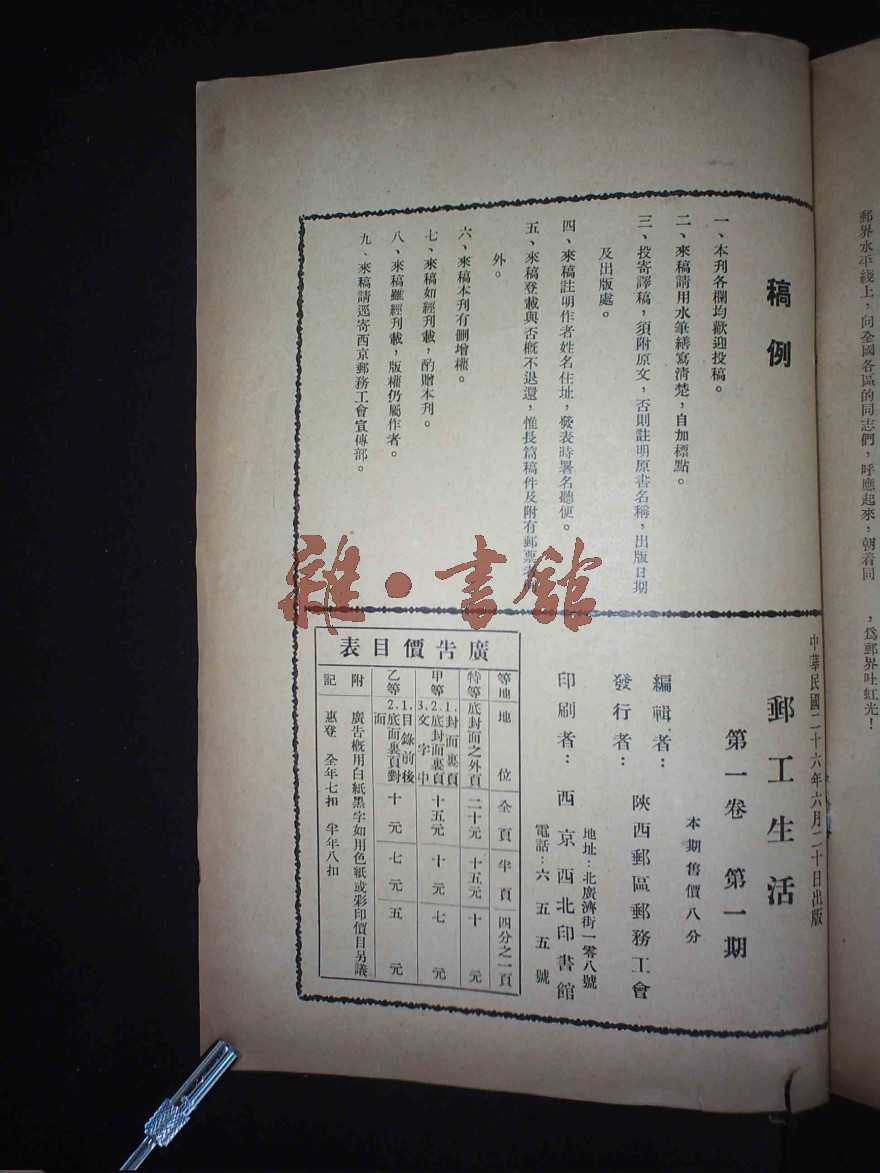 郵界水平綫上，向全國各區的同志們，呼應起來，朝着同
，爲郵界吐虹光！
稿例
一、本刊各欄均歡迎投稿。
二、來稿請用水筆繕寫清楚，自加標點。
三、投寄譯稿，須附原文，否則註明原書名稱，出版日期
及出版處。
四、來稿註明作者姓名住址，發表時署名聽便。
五、來稿登載與否概不退還，惟長篇稿件及附有郵票者
外。
六、來稿本刊有刪增權。
七、來稿如經刊載，酌贈本刊。
八、來稿雖經刊載，版權仍屬作者。
九、來稿請逕寄西京郵務工會宣傳部。
雜·書館
中華民國二十六年六月二十日出版
郵工生活
第一卷 第一期
本期售價八分
編輯者：
發行者：
陝西郵區郵務工會
地址：北廣濟街一零八號
印刷者：西京西北印書館
電話：六五五號
廣告價目表
等地 地位 全頁 半頁 四分之一頁
特等 底封面之外頁 二十元 十五元 十元
甲等 1.封面裏頁 2.底封面裏頁 3.文字中 十五元 十元 七元
乙等 1.目錄前後 2.底面裏頁對面 十元 七元 五元
附記 廣告概用白紙黑字如用色紙或彩印價目另議
惠登 全年七扣 半年八扣